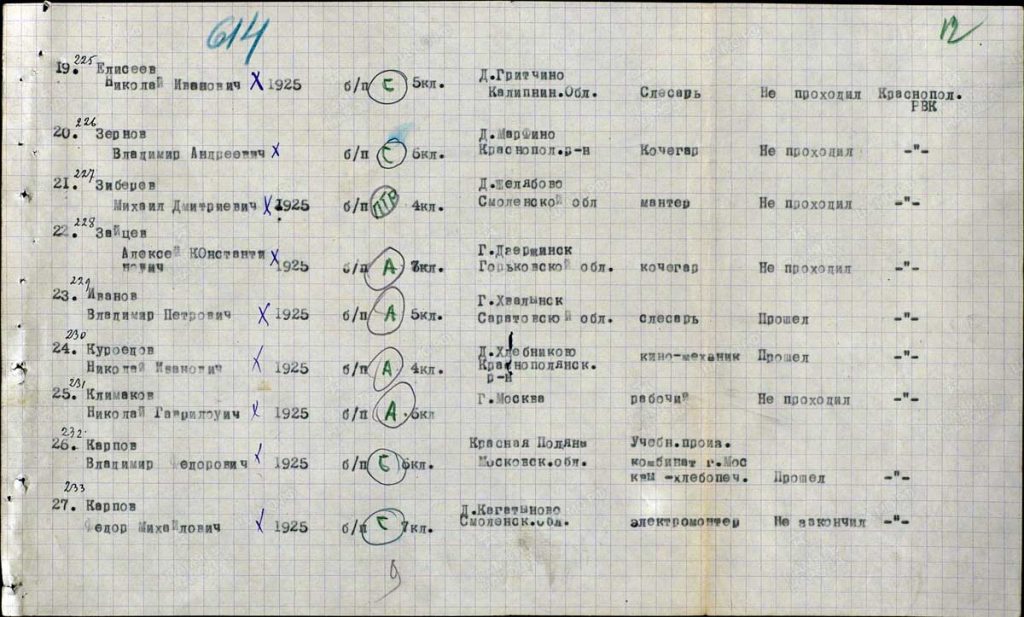 614
12
225
19. Елисеев
Николай Иванович X 1925 б/п С 5кл. Д.Гритчино Калинин.Обл. Слесарь Не проходил Краснопол. РВК
226
20. Зернов
Владимир Андреевич X б/п С 6кл. Д.Марфино Краснопол.р-н Кочегар Не проходил -"-
227
21. Зиберев
Михаил Дмитриевич X 1925 б/п ПТР 4кл. Д.Желябово Смоленской обл мантер Не проходил -"-
228
22. Зайцев
Алексей КОнстанти
нович X 1925 б/п А 7кл. Г.Дзержинск Горьковской обл. кочегар Не проходил -"-
229
23. Иванов
Владимир Петрович X 1925 б/п А 5кл. Г.Хвалынск Саратовскюй обл. слесарь Прошел -"-
230
24. Куроедов
Николай Иванович X 1925 б/п А 4кл. Д.Хлебникою Краснополянск. р-н кино-механик Прошел -"-
231
25. Климаков
Николай Гаврилоуич X 1925 б/п А 6кл Г.Москва рабочий Не проходил -"-
232
26. Карпов
Владимир Федорович X 1925 б/п С 6кл. Красная Поляны Московск.обл. Учебн.произ. комбинат г.Мос
квы -хлебопеч. Прошел -"-
233
27. Карпов
Федор Михайлович X 1925 б/п С 7кл. Д.Кагатыново Смоленск.обл. электромонтер Не закончил -"-
9